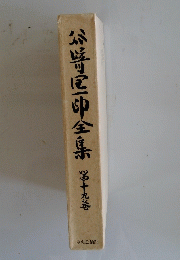 谷崎潤一郎全集
第十九巻